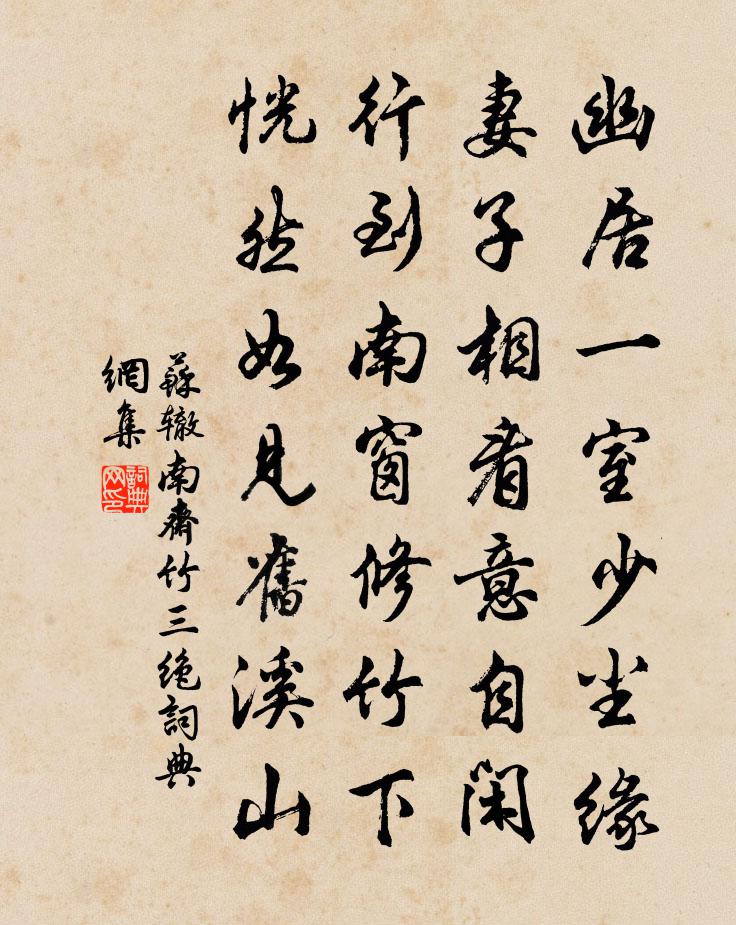 幽居一室少尘緣
妻子相看意自閑
行到南窗修竹下
恍然如見舊溪山
蘇辙南齋竹三绝詞典
網集
詞典网印